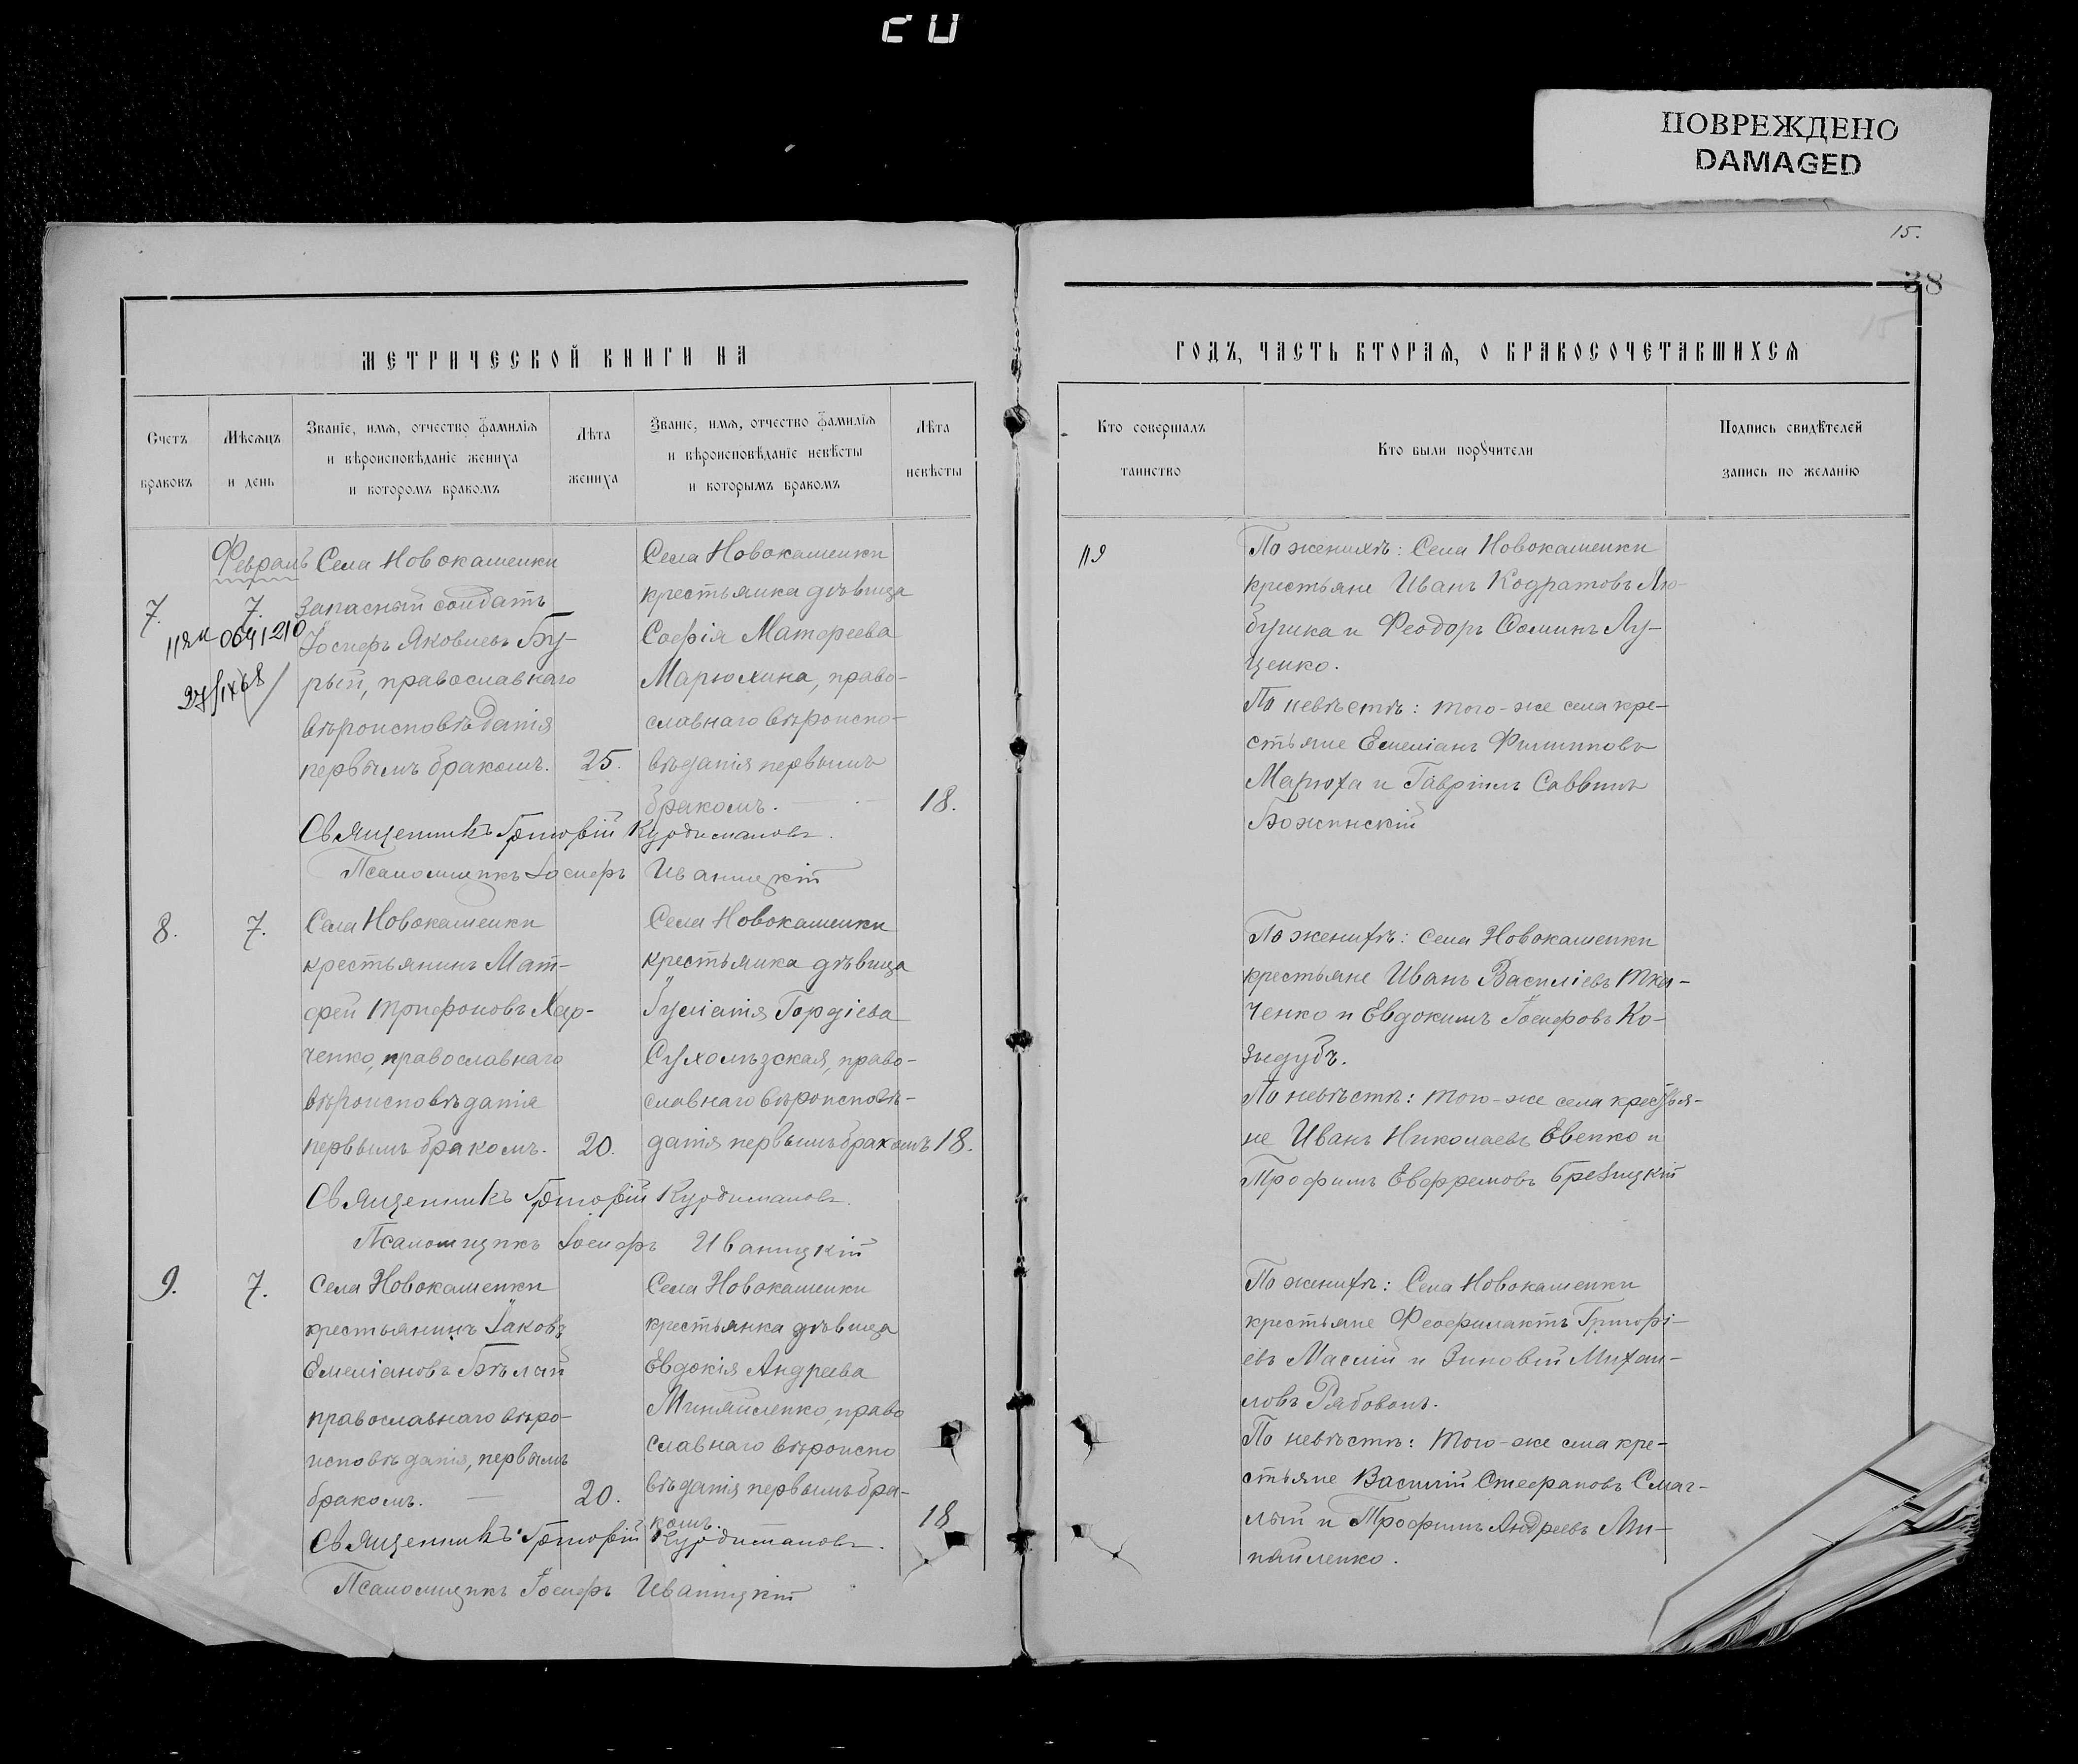 ПОВРЕЖДЕНО
DAMAGED
15.
38
МЕТРИЧЕСКОЙ КНИГИ НА
Счетъ
браковъ
Мѣсяцъ
и день
Званіе, имя, отчество фамилія
и вѣроисповѣданіе жениха
и которомъ бракомъ
Лѣта
жениха
Званіе, имя, отчество фамилія
и вѣроисповѣданіе невѣсты
и которымъ бракомъ
Лѣта
невѣсты
Февраль
7.
7.
Села Новокаменки
запасный солдатъ
Іосифъ Яковлевъ Бу-
рый, православнаго
вѣроисповѣданія
первымъ бракомъ.
25.
Села Новокаменки
крестьянка дѣвица
Софія Матфеева
Марюхина, право-
славнаго вѣроиспо-
вѣданія первымъ
бракомъ.
18.
Священникъ Григорій Курдимановъ.
Псаломщикъ Іосифъ Иваницкій
8.
7.
Села Новокаменки
крестьянинъ Мат-
фей Трифоновъ Хар-
ченко, православнаго
вѣроисповѣданія
первымъ бракомъ.
20.
Села Новокаменки
крестьянка дѣвица
Іуліанія Гордіева
право-
славнаго вѣроисповѣ-
данія первымъ бракомъ
18.
Священникъ Григорій Курдимановъ.
Псаломщикъ Іосифъ Иваницкій
9.
7.
Села Новокаменки
крестьянинъ Іаковъ
Емеліановъ Бѣлый
православнаго вѣро-
исповѣданія, первымъ
бракомъ.
20.
Села Новокаменки
крестьянка дѣвица
Евдокія Андреева
право
славнаго вѣроиспо
вѣданія первымъ бра-
комъ.
18
Священникъ Григорій Курдимановъ.
Псаломщикъ Іосифъ Иваницкій
ГОДЪ, ЧАСТЬ ВТОРАЯ, О БРАКОСОЧЕТАВШИХСЯ
Кто совершалъ
таинство
Кто были поручители
Подпись свидѣтелей
запись по желанію
По женихѣ: Села Новокаменки
крестьяне Иванъ Кодратовъ
и Феодоръ Ѳоминъ Лу-
ценко.
По невѣстѣ: того-же села кре-
стьяне Емеліанъ Филипповъ
Марюха и Гавріилъ Саввинъ
Божинскій
По женихѣ: Села Новокаменки
крестьяне Иванъ Василіевъ Тка-
ченко и Евдокимъ Іосифовъ Ко-
зыдубъ.
По невѣстѣ: того-же села крестья-
не Иванъ Николаевъ Евенко и
Трофимъ Евфремовъ Брезицкій
По женихѣ: Села Новокаменки
крестьяне Феофилактъ Григорі-
евъ Маслій и Зиновій Михаи-
ловъ Рябоволъ.
По невѣстѣ: того-же села кре-
стьяне Василій Стефановъ Смаг-
лый и Трофимъ Андреевъ